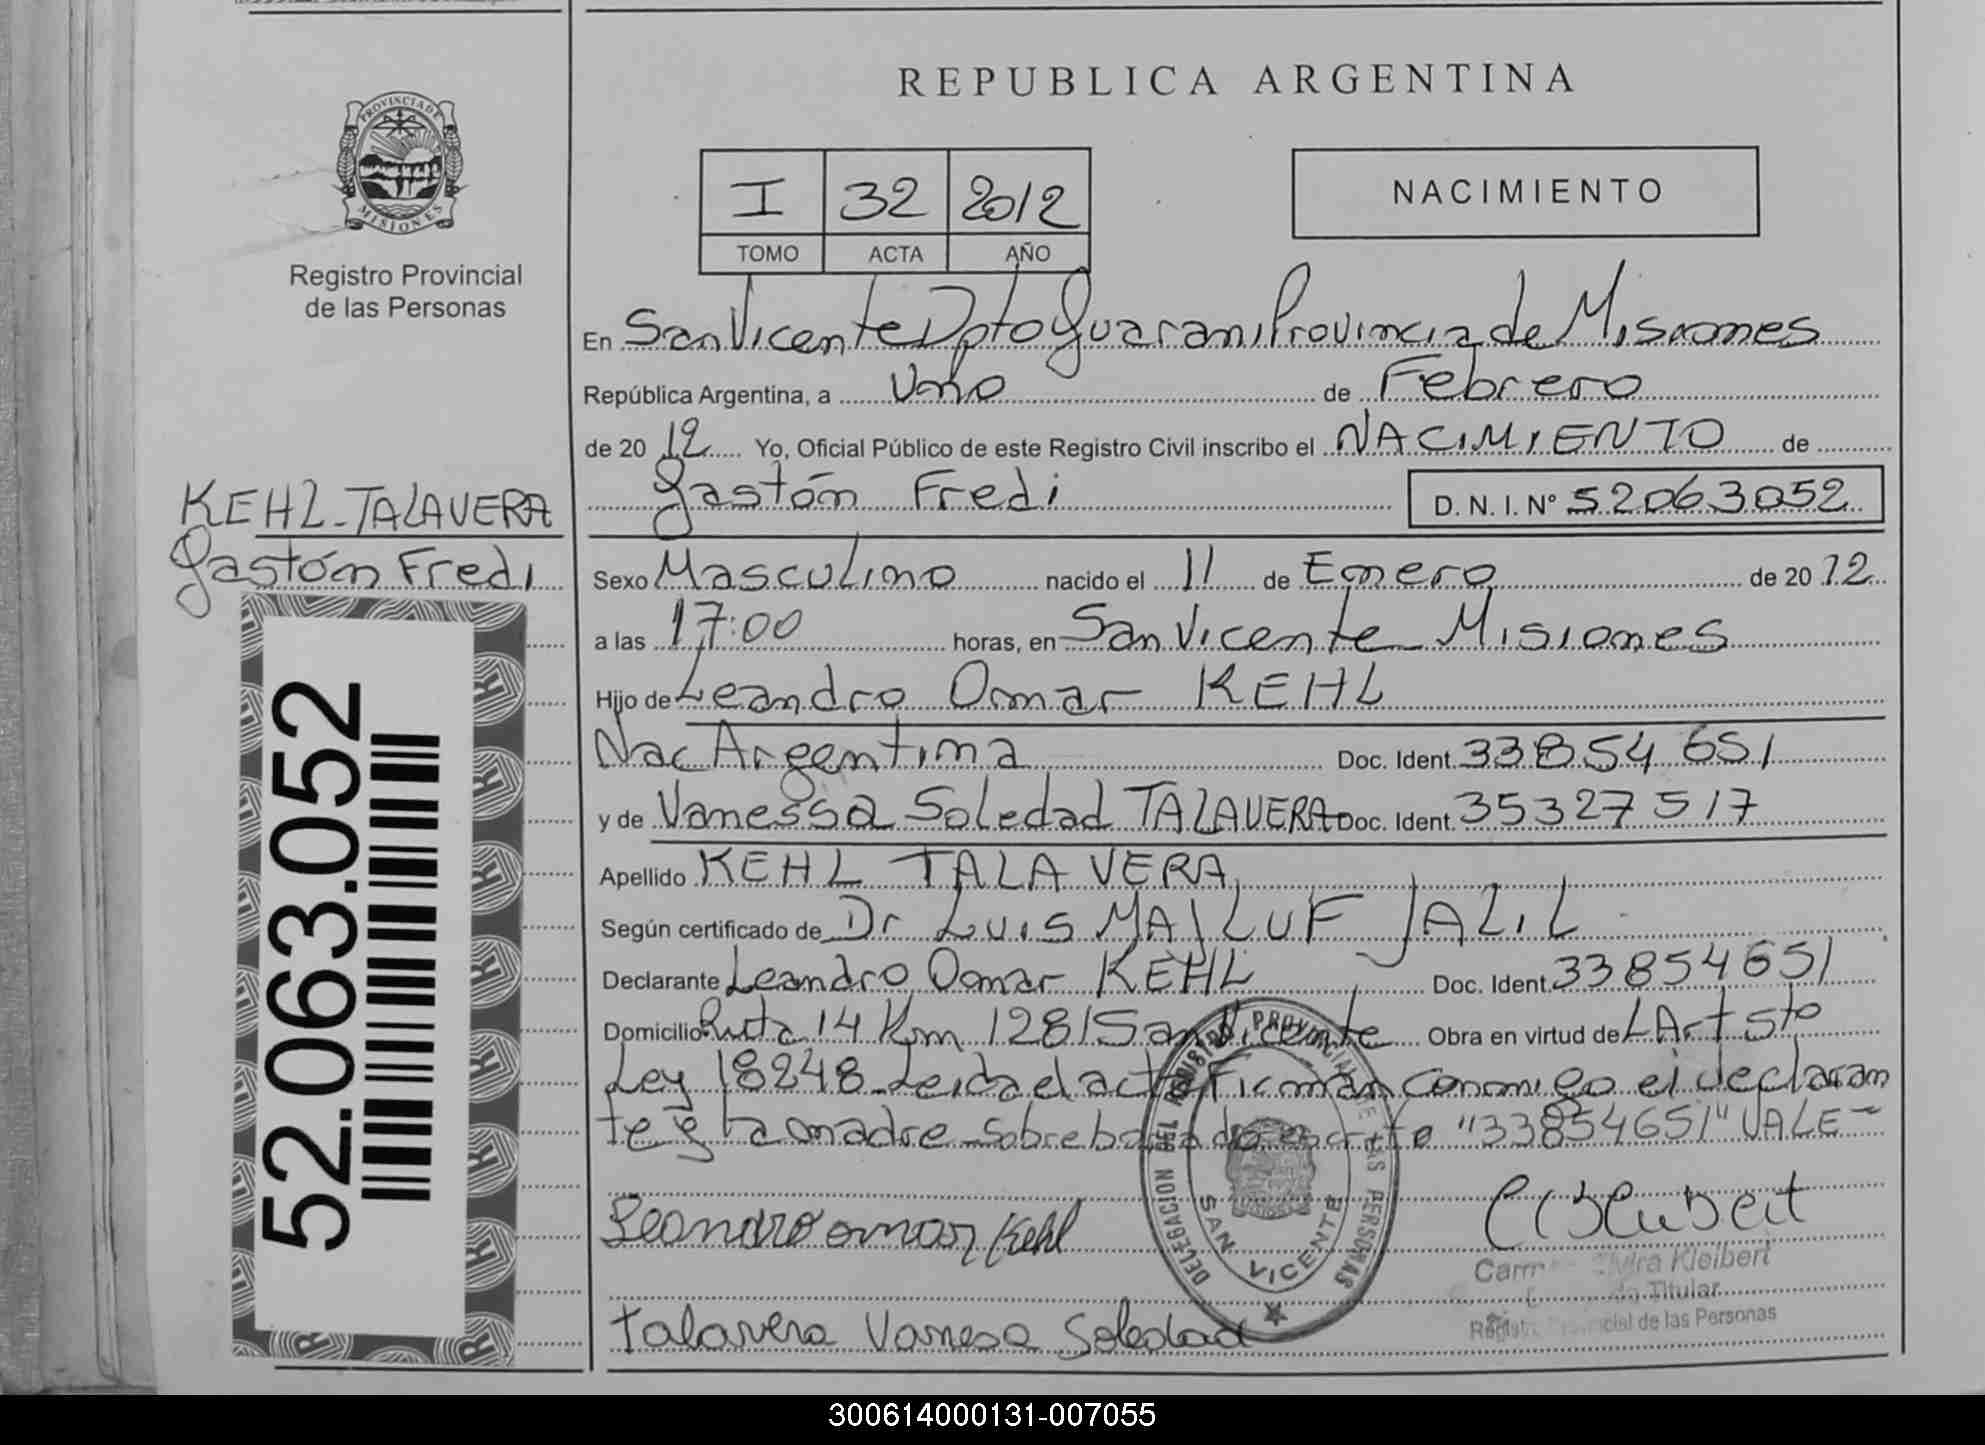 REPUBLICA ARGENTINA
PROVINCIA DE
MISIONES
Registro Provincial
de las Personas
I 32 2012
TOMO ACTA AÑO
NACIMIENTO
En San Vicente Dpto Guarani Provincia de Misiones
República Argentina, a Uno de Febrero
de 2012 Yo, Oficial Público de este Registro Civil inscribo el NACIMIENTO de
Gastón Fredi D. N. I. N° 52063052
KEHL-TALAVERA
Gastón Fredi
52.063.052
Sexo Masculino nacido el 11 de Enero de 2012
a las 17:00 horas, en San Vicente Misiones
Hijo de Leandro Omar KEHL
Nac Argentina Doc. Ident. 33854651
y de Vanessa Soledad TALAVERA Doc. Ident. 35327517
Apellido KEHL TALAVERA
Según certificado de Dr LUIS MAJLUF JALIL
Declarante Leandro Omar KEHL Doc. Ident. 33854651
Domicilio Ruta 14 Km 1281 San Vicente Obra en virtud de L Art 5to
Ley 18248 Leida el acta Firman conmigo el declaran
te y la madre sobre borrado escrito "33854651" VALE
Leandro omar Kehl
Talavera Vanesa Soledad
DELEGACION DEL REGISTRO PROVINCIAL DE LAS PERSONAS
SAN VICENTE
Kleibert
Titular
de las Personas
300614000131-007055